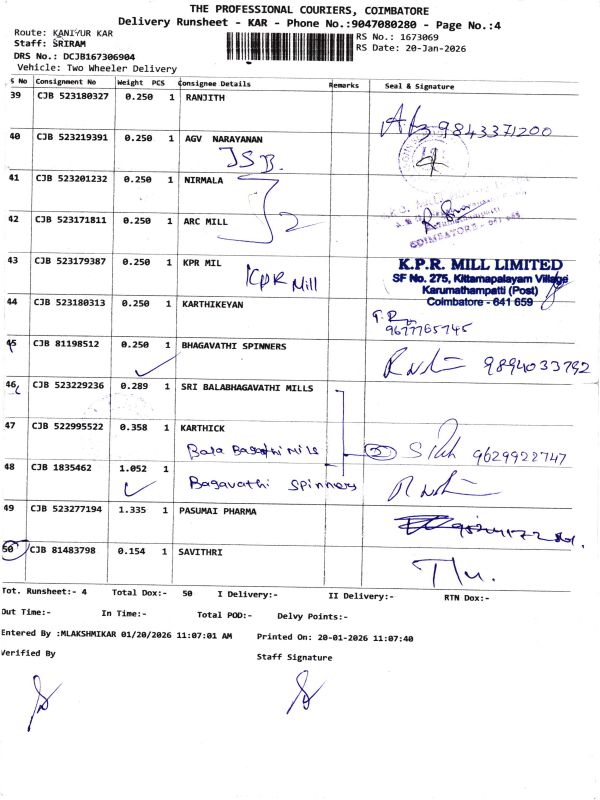 THE PROFESSIONAL COURIERS, COIMBATORE
Delivery Runsheet - KAR - Phone No.:9047080280 - Page No.:4
Route: KANIYUR KAR
RS No.: 1673069
Staff: SRIRAM
RS Date: 20-Jan-2026
DRS No.: DCJB167306904
Vehicle: Two Wheeler Delivery
S No Consignment No Weight PCS Consignee Details Remarks Seal & Signature
39 CJB 523180327 0.250 1 RANJITH
9843371200
40 CJB 523219391 0.250 1 AGV NARAYANAN
JSB.
41 CJB 523201232 0.250 1 NIRMALA
2
42 CJB 523171811 0.250 1 ARC MILL
COIMBATORE
43 CJB 523179387 0.250 1 KPR MIL
KPR Mill
K.P.R. MILL LIMITED
SF No. 275, Kittamapalayam Village
Karumathampatti (Post)
Coimbatore - 641 659
44 CJB 523180313 0.250 1 KARTHIKEYAN
9677765745
45 CJB 81198512 0.250 1 BHAGAVATHI SPINNERS
9894033792
46 CJB 523229236 0.289 1 SRI BALABHAGAVATHI MILLS
47 CJB 522995522 0.358 1 KARTHICK
Bala Bagathi Mils
3 9629922747
48 CJB 1835462 1.052 1
Bagavathi Spinners
49 CJB 523277194 1.335 1 PASUMAI PHARMA
50 CJB 81483798 0.154 1 SAVITHRI
Tot. Runsheet:- 4 Total Dox:- 50 I Delivery:- II Delivery:- RTN Dox:-
Out Time:- In Time:- Total POD:- Delvy Points:-
Entered By :MLAKSHMIKAR 01/20/2026 11:07:01 AM Printed On: 20-01-2026 11:07:40
Verified By Staff Signature